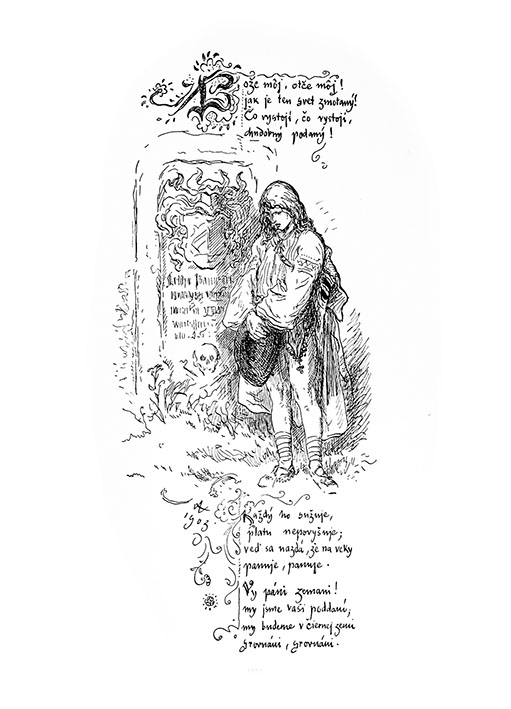 Bože môj, otče môj!
jak je ten svet zmotaný!
Čo vystojí, čo vystojí,
chudobný podaný!
1903
Každý ho sužuje,
platu nepovyšuje;
veď sa nazdá, že na veky
panuje, panuje.
Vy páni zemani!
my jsme vaši poddaní;
my budeme v čiernej zemi
srovnáni, srovnáni.